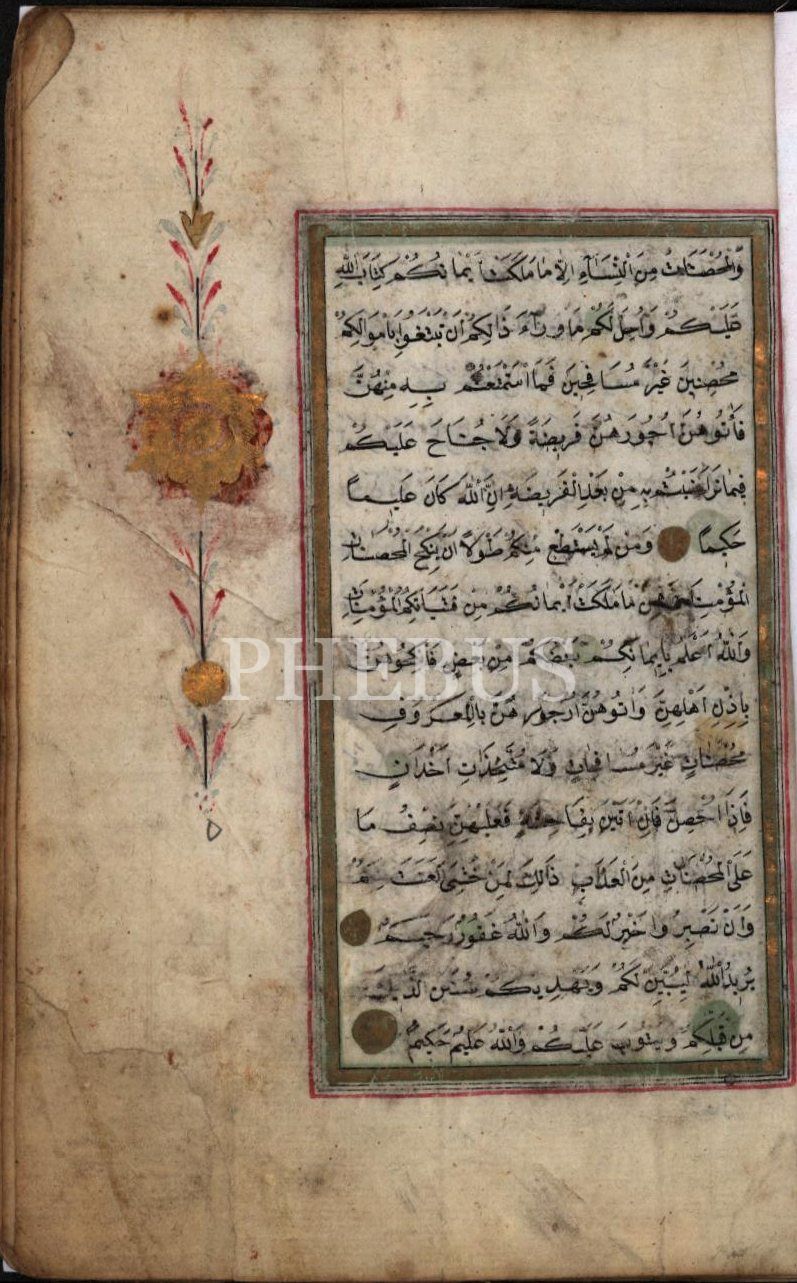 وَالْمُحْصَنَاتُ مِنَ النِّسَآءِ اِلَّا مَا مَلَكَتْ اَيْمَانُكُمْ كِتَابَ اللّٰهِ
عَلَيْكُمْ وَاُحِلَّ لَكُمْ مَا وَرَآءَ ذَالِكُمْ اَنْ تَبْتَغُوا بِاَمْوَالِكُمْ
مُحْصِنِينَ غَيْرَ مُسَافِحِينَ فَمَا اسْتَمْتَعْتُمْ بِهِ مِنْهُنَّ
فَاٰتُوهُنَّ اُجُورَهُنَّ فَرِيضَةً وَلَا جُنَاحَ عَلَيْكُمْ
فِيمَا تَرَاضَيْتُمْ بِهِ مِنْ بَعْدِ الْفَرِيضَةِ اِنَّ اللّٰهَ كَانَ عَلِيمًا
حَكِيمًا وَمَنْ لَمْ يَسْتَطِعْ مِنْكُمْ طَوْلًا اَنْ يَنْكِحَ الْمُحْصَنَاتِ
الْمُؤْمِنَاتِ فَمِنْ مَا مَلَكَتْ اَيْمَانُكُمْ مِنْ فَتَيَاتِكُمُ الْمُؤْمِنَاتِ
وَاللّٰهُ اَعْلَمُ بِاِيمَانِكُمْ بَعْضُكُمْ مِنْ بَعْضٍ فَانْكِحُوهُنَّ
PHEBUS
بِاِذْنِ اَهْلِهِنَّ وَاٰتُوهُنَّ اُجُورَهُنَّ بِالْمَعْرُوفِ
مُحْصَنَاتٍ غَيْرَ مُسَافِحَاتٍ وَلَا مُتَّخِذَاتِ اَخْدَانٍ
فَاِذَا اُحْصِنَّ فَاِنْ اَتَيْنَ بِفَاحِشَةٍ فَعَلَيْهِنَّ نِصْفُ مَا
عَلَى الْمُحْصَنَاتِ مِنَ الْعَذَابِ ذَالِكَ لِمَنْ خَشِيَ الْعَنَتَ مِنْكُمْ
وَاَنْ تَصْبِرُوا خَيْرٌ لَكُمْ وَاللّٰهُ غَفُورٌ رَحِيمٌ
يُرِيدُ اللّٰهُ لِيُبَيِّنَ لَكُمْ وَيَهْدِيَكُمْ سُنَنَ الَّذِينَ
مِنْ قَبْلِكُمْ وَيَتُوبَ عَلَيْكُمْ وَاللّٰهُ عَلِيمٌ حَكِيمٌ